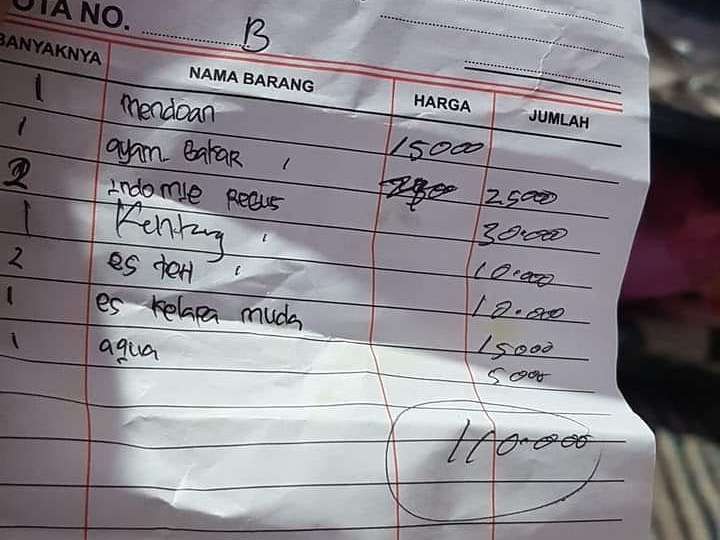 OTA NO. B
BANYAKNYA NAMA BARANG HARGA JUMLAH
1 mendoan 15000
1 ayam Bakar , 25000
2 indomie REBUS 30.000
1 Kentang , 10.000
2 es teH , 10.000
1 es kelapa muda 15000
1 aqua 5000
110.000